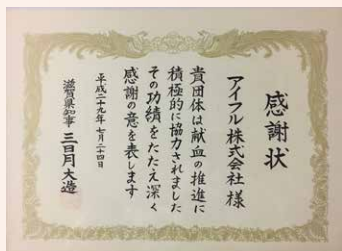 感謝状
アイフル株式会社 様
貴団体は献血の推進に
積極的に協力されました
その功績をたたえ深く
感謝の意を表します
平成二十九年七月二十四日
滋賀県知事 三日月大造